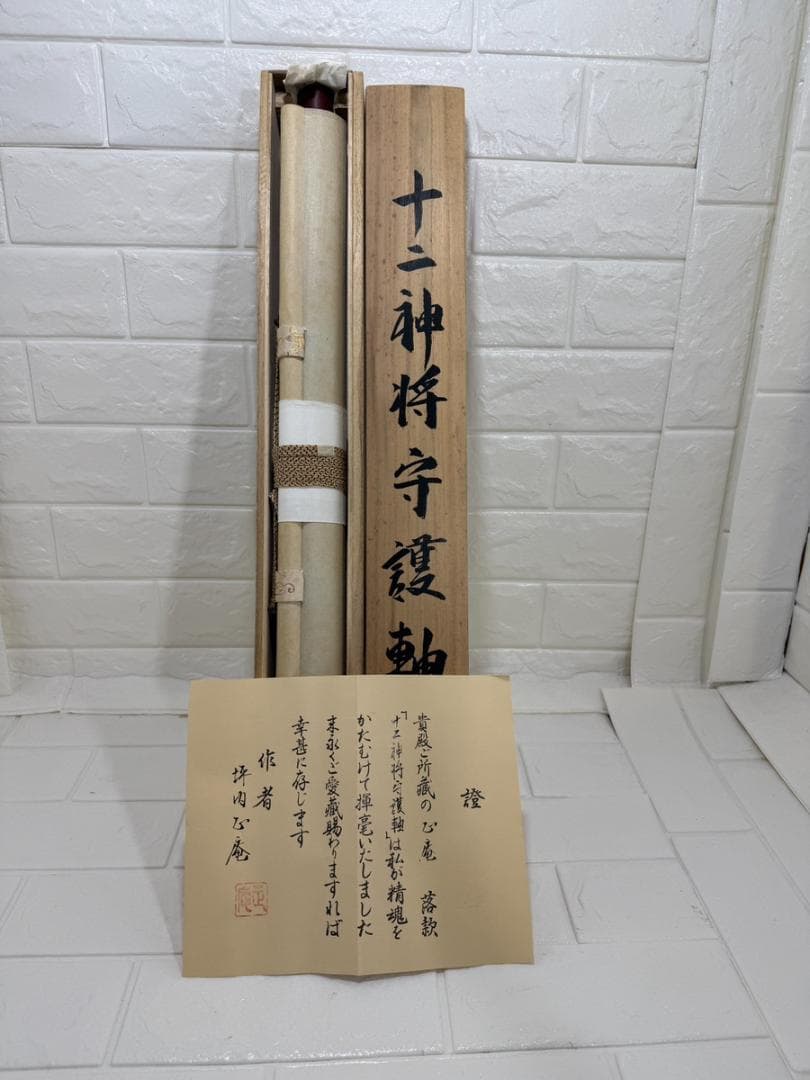 十二神将守護軸
證
貴殿ご所蔵の正庵 落款
「十二神将守護軸」は私が精魂を
かたむけて揮毫いたしました
末永くご愛蔵賜わりますれば
幸甚に存じます
作者
坪内正庵